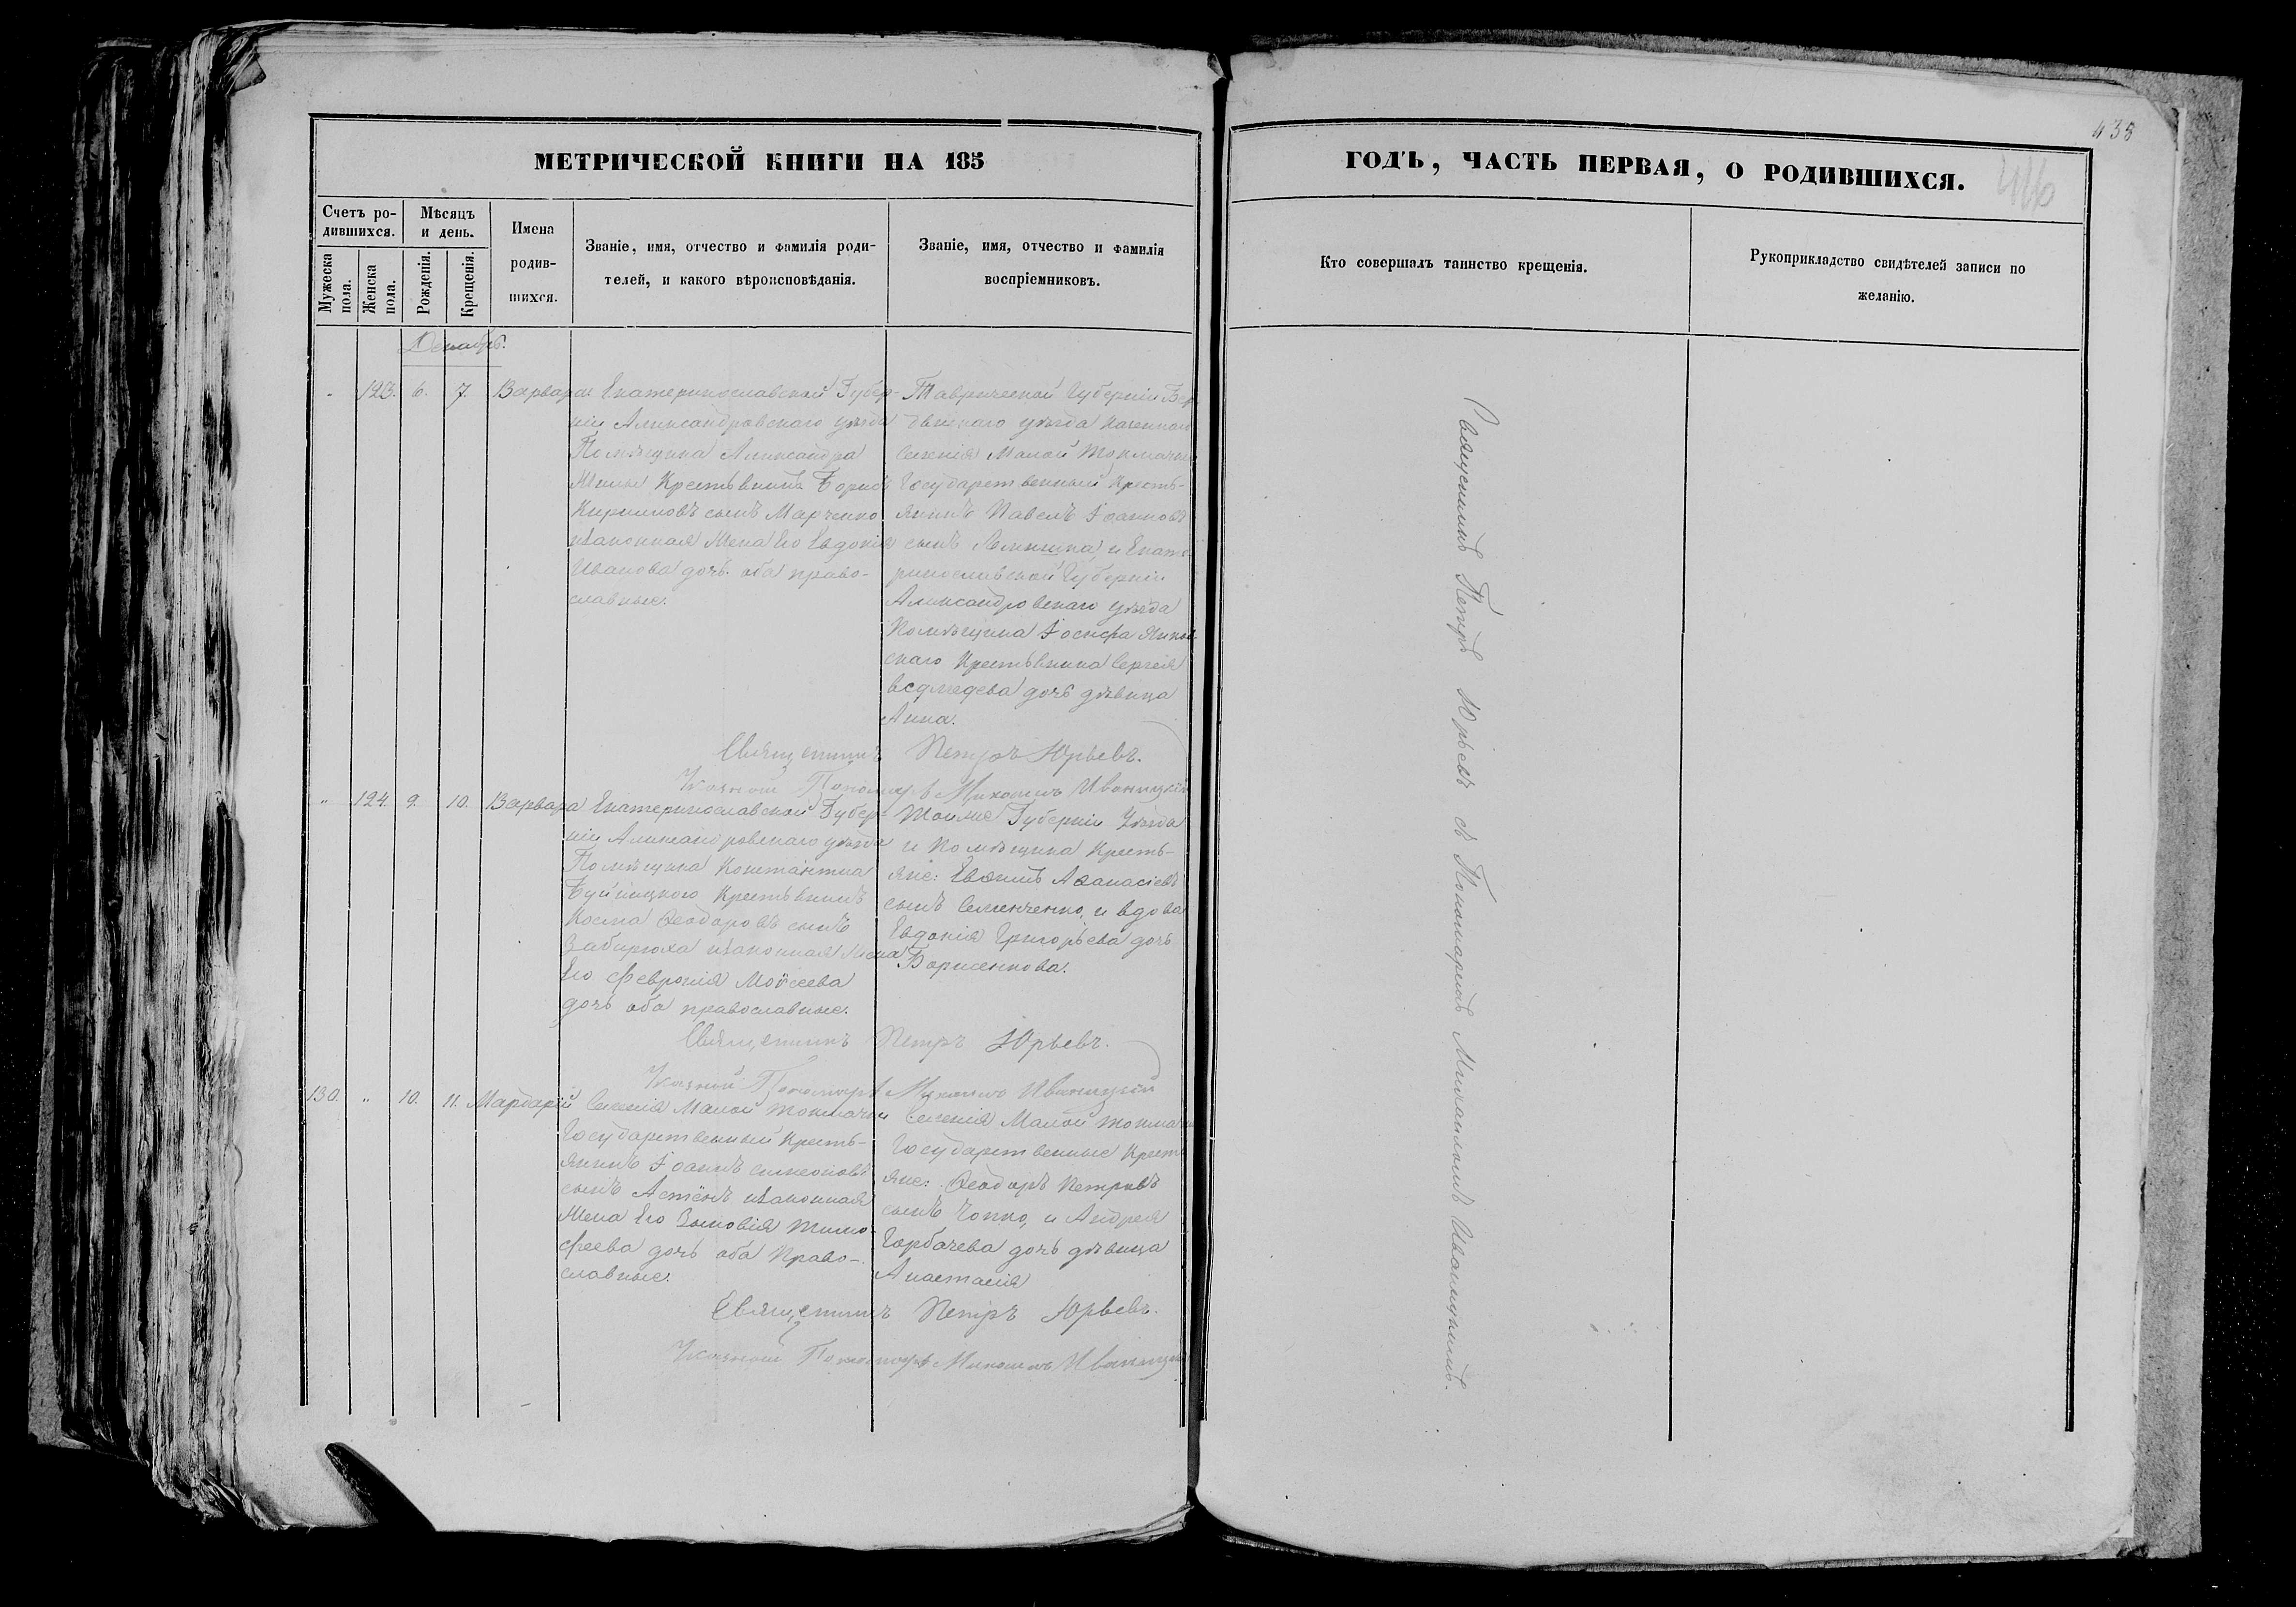 438
446
МЕТРИЧЕСКОЙ КНИГИ НА 185
ГОДЪ, ЧАСТЬ ПЕРВАЯ, О РОДИВШИХСЯ.
Счетъ ро-
дившихся.
Мужеска пола.
Женска пола.
Мѣсяцъ
и день.
Рожденія.
Крещенія.
Имена
родив-
шихся.
Званіе, имя, отчество и фамилія роди-
телей, и какого вѣроисповѣданія.
Званіе, имя, отчество и фамилія
воспріемниковъ.
Кто совершалъ таинство крещенія.
Рукоприкладство свидѣтелей записи по
желанію.
Декабрь.
123. 6. 7. Варвара
Екатеринославской Губер-
ніи Александровскаго уѣзда
Помѣщика Александра
Крестьянинъ Борисъ
Кириловъ сынъ Марченко
изаконная Жена Его Евдокія
Иванова дочь. оба право-
славные.
Таврической Губерніи Бер-
дянскаго уѣзда Казеннаго
Селенія Малой Токмачки
Государственный Кресть-
янинъ Павелъ Іоанновъ
сынъ и Екате-
ринославской Губерніи
Александровскаго уѣзда
Помѣщика Іосифа
скаго Крестьянина Сергея
дочь дѣвица
Анна.
Священникъ Петръ Юрьевъ.
Указной Пономарь Михаилъ Иваницкій
" 124. 9. 10. Варвара
Екатеринославской Губер-
ніи Александровскаго уѣзда
Помѣщика Константина
Крестьянинъ
Косма Ѳеодоровъ сынъ
изаконная Жена
Его Февронія Моѵсеева
дочь оба православные.
Тоиже Губерніи Уѣзда
и Помѣщика Кресть-
яне: Евѳимъ Аѳанасіевъ
сынъ Семенченко, и вдова
Евдокія Григорьева дочь
Борисенкова.
Священникъ Петръ Юрьевъ.
Указной Пономарь Михаилъ Иваницкій
130. " 10. 11. Мардарій
Селенія Малой Токмачки
Государственный Кресть-
янинъ Іоаннъ Симеоновъ
сынъ изаконная
Жена Его Зиновія Тимо-
феева дочь оба Право-
славные.
Селенія Малой Токмачки
Государственные Кресть-
яне: Ѳеодоръ Петровъ
сынъ и Андрея
Горбачева дочь дѣвица
Анастасія
Священникъ Петръ Юрьевъ.
Указной Пономарь Михаилъ Иваницкій
Священникъ Петръ Юрьевъ съ Пономаремъ Михаиломъ Иваницкимъ.